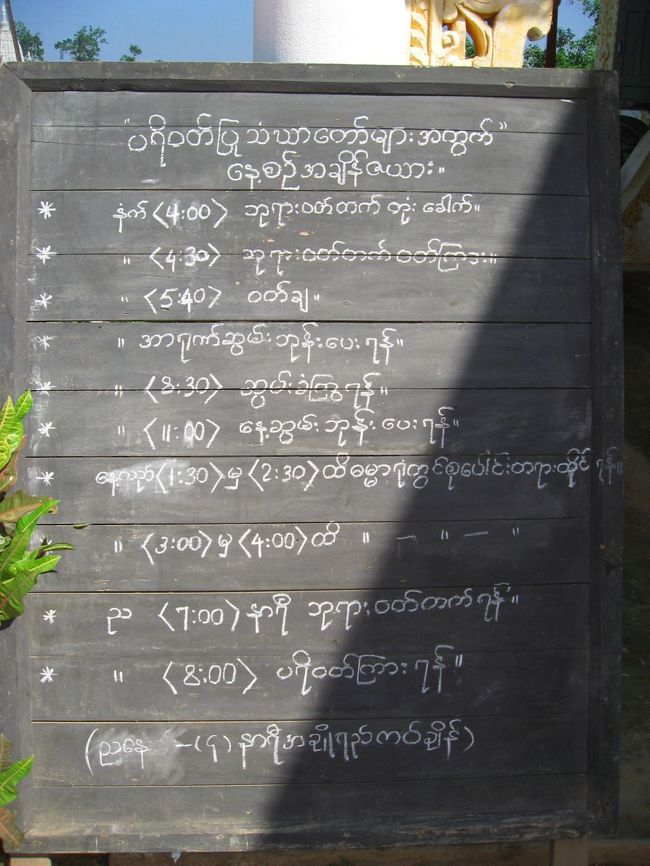 "ပရိဝတ်ပြုသံဃာတော်များအတွက်"
နေ့စဉ်အချိန်ဇယား။
* နံက် <4:00> ဘုရားဝတ်တက် တုံးခေါက်။
* " <4:30> ဘုရားဝတ်တက်ဝတ်ကြား။
* " <5:40> ဝတ်ချ။
* " အာရုဏ်ဆွမ်းဘုန်းပေးရန်။
* " <8:30> ဆွမ်းခံကြွရန်။
* " <11:00> နေ့ဆွမ်းဘုန်းပေးရန်။
* နေ့လည် <1:30> မှ <2:30> ထိဓမ္မာရုံတွင်စုပေါင်းတရားထိုင်ရန်။
" <3:00> မှ <4:00> ထိ " — " — "
* ည <7:00> နာရီ ဘုရားဝတ်တက်ရန်။
* " <8:00> ပရိဝတ်ကြားရန်။
(ညနေ -(၄) နာရီအချိုရည်ကပ်ချိန်)